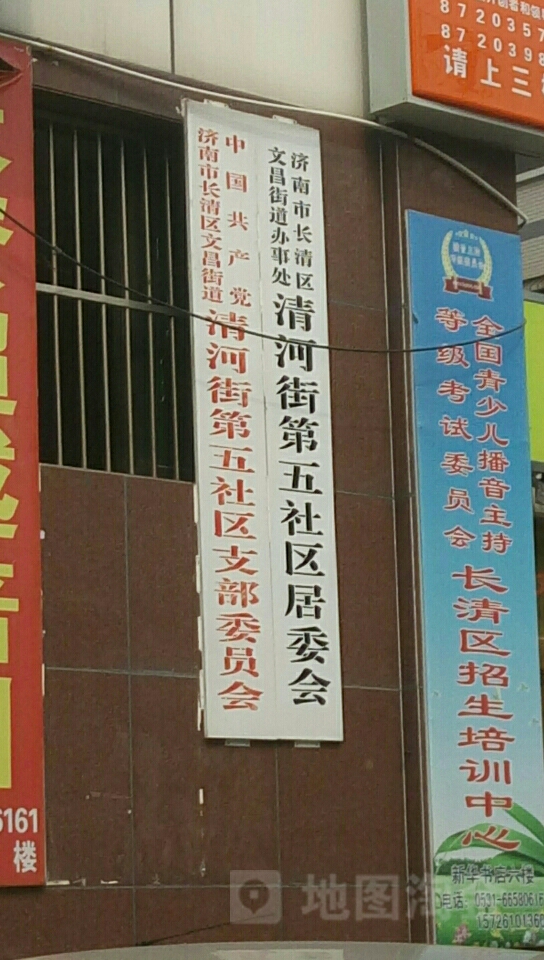 872035
872039
请上三
中国共产党
济南市长清区文昌街道
清河街第五社区支部委员会
济南市长清区
文昌街道办事处
清河街第五社区居委会
全国青少儿播音主持
等级考试委员会
长清区招生培训中心
新华书店六楼
电话：0531-66580616
1572610136
6161
楼
地图淘